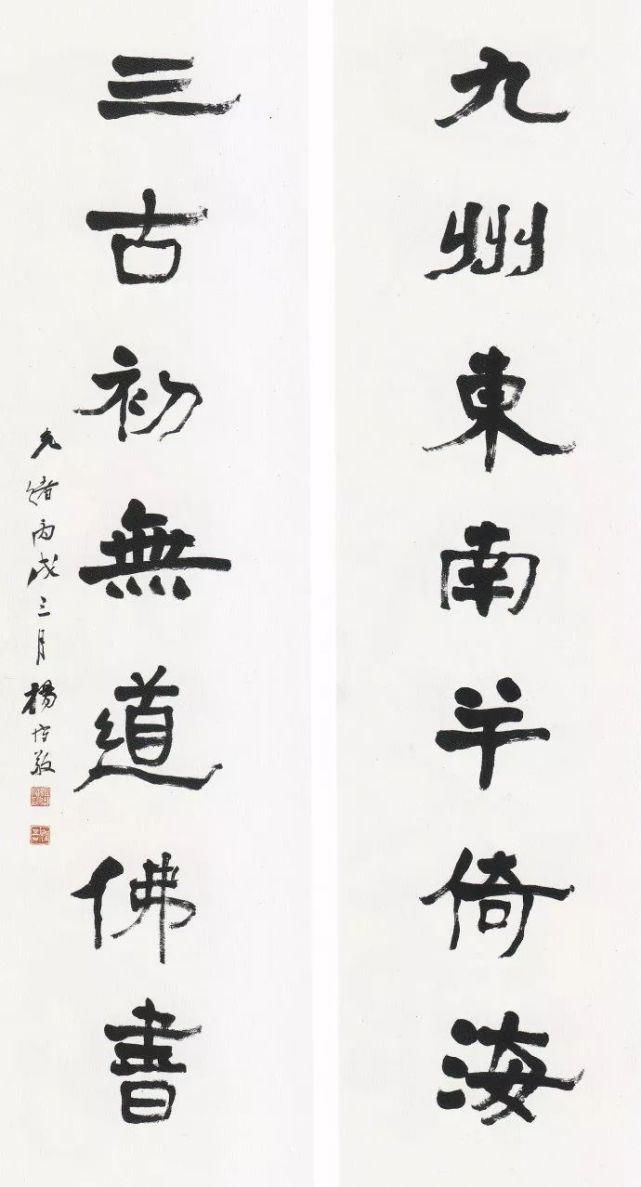 九州東南半倚海
三古初無道佛書
光緒丙戌三月楊守敬